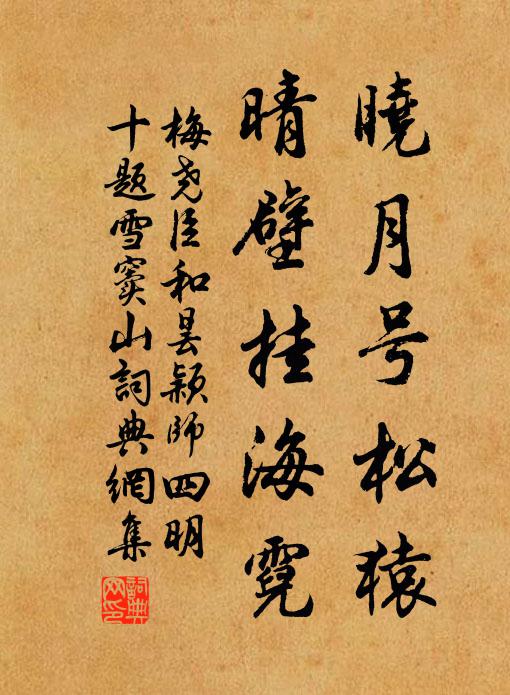 曉月号松猿
晴壁挂海霓
梅尧臣和昙颖师四明
十题雪窦山詞典網集
詞典
网印